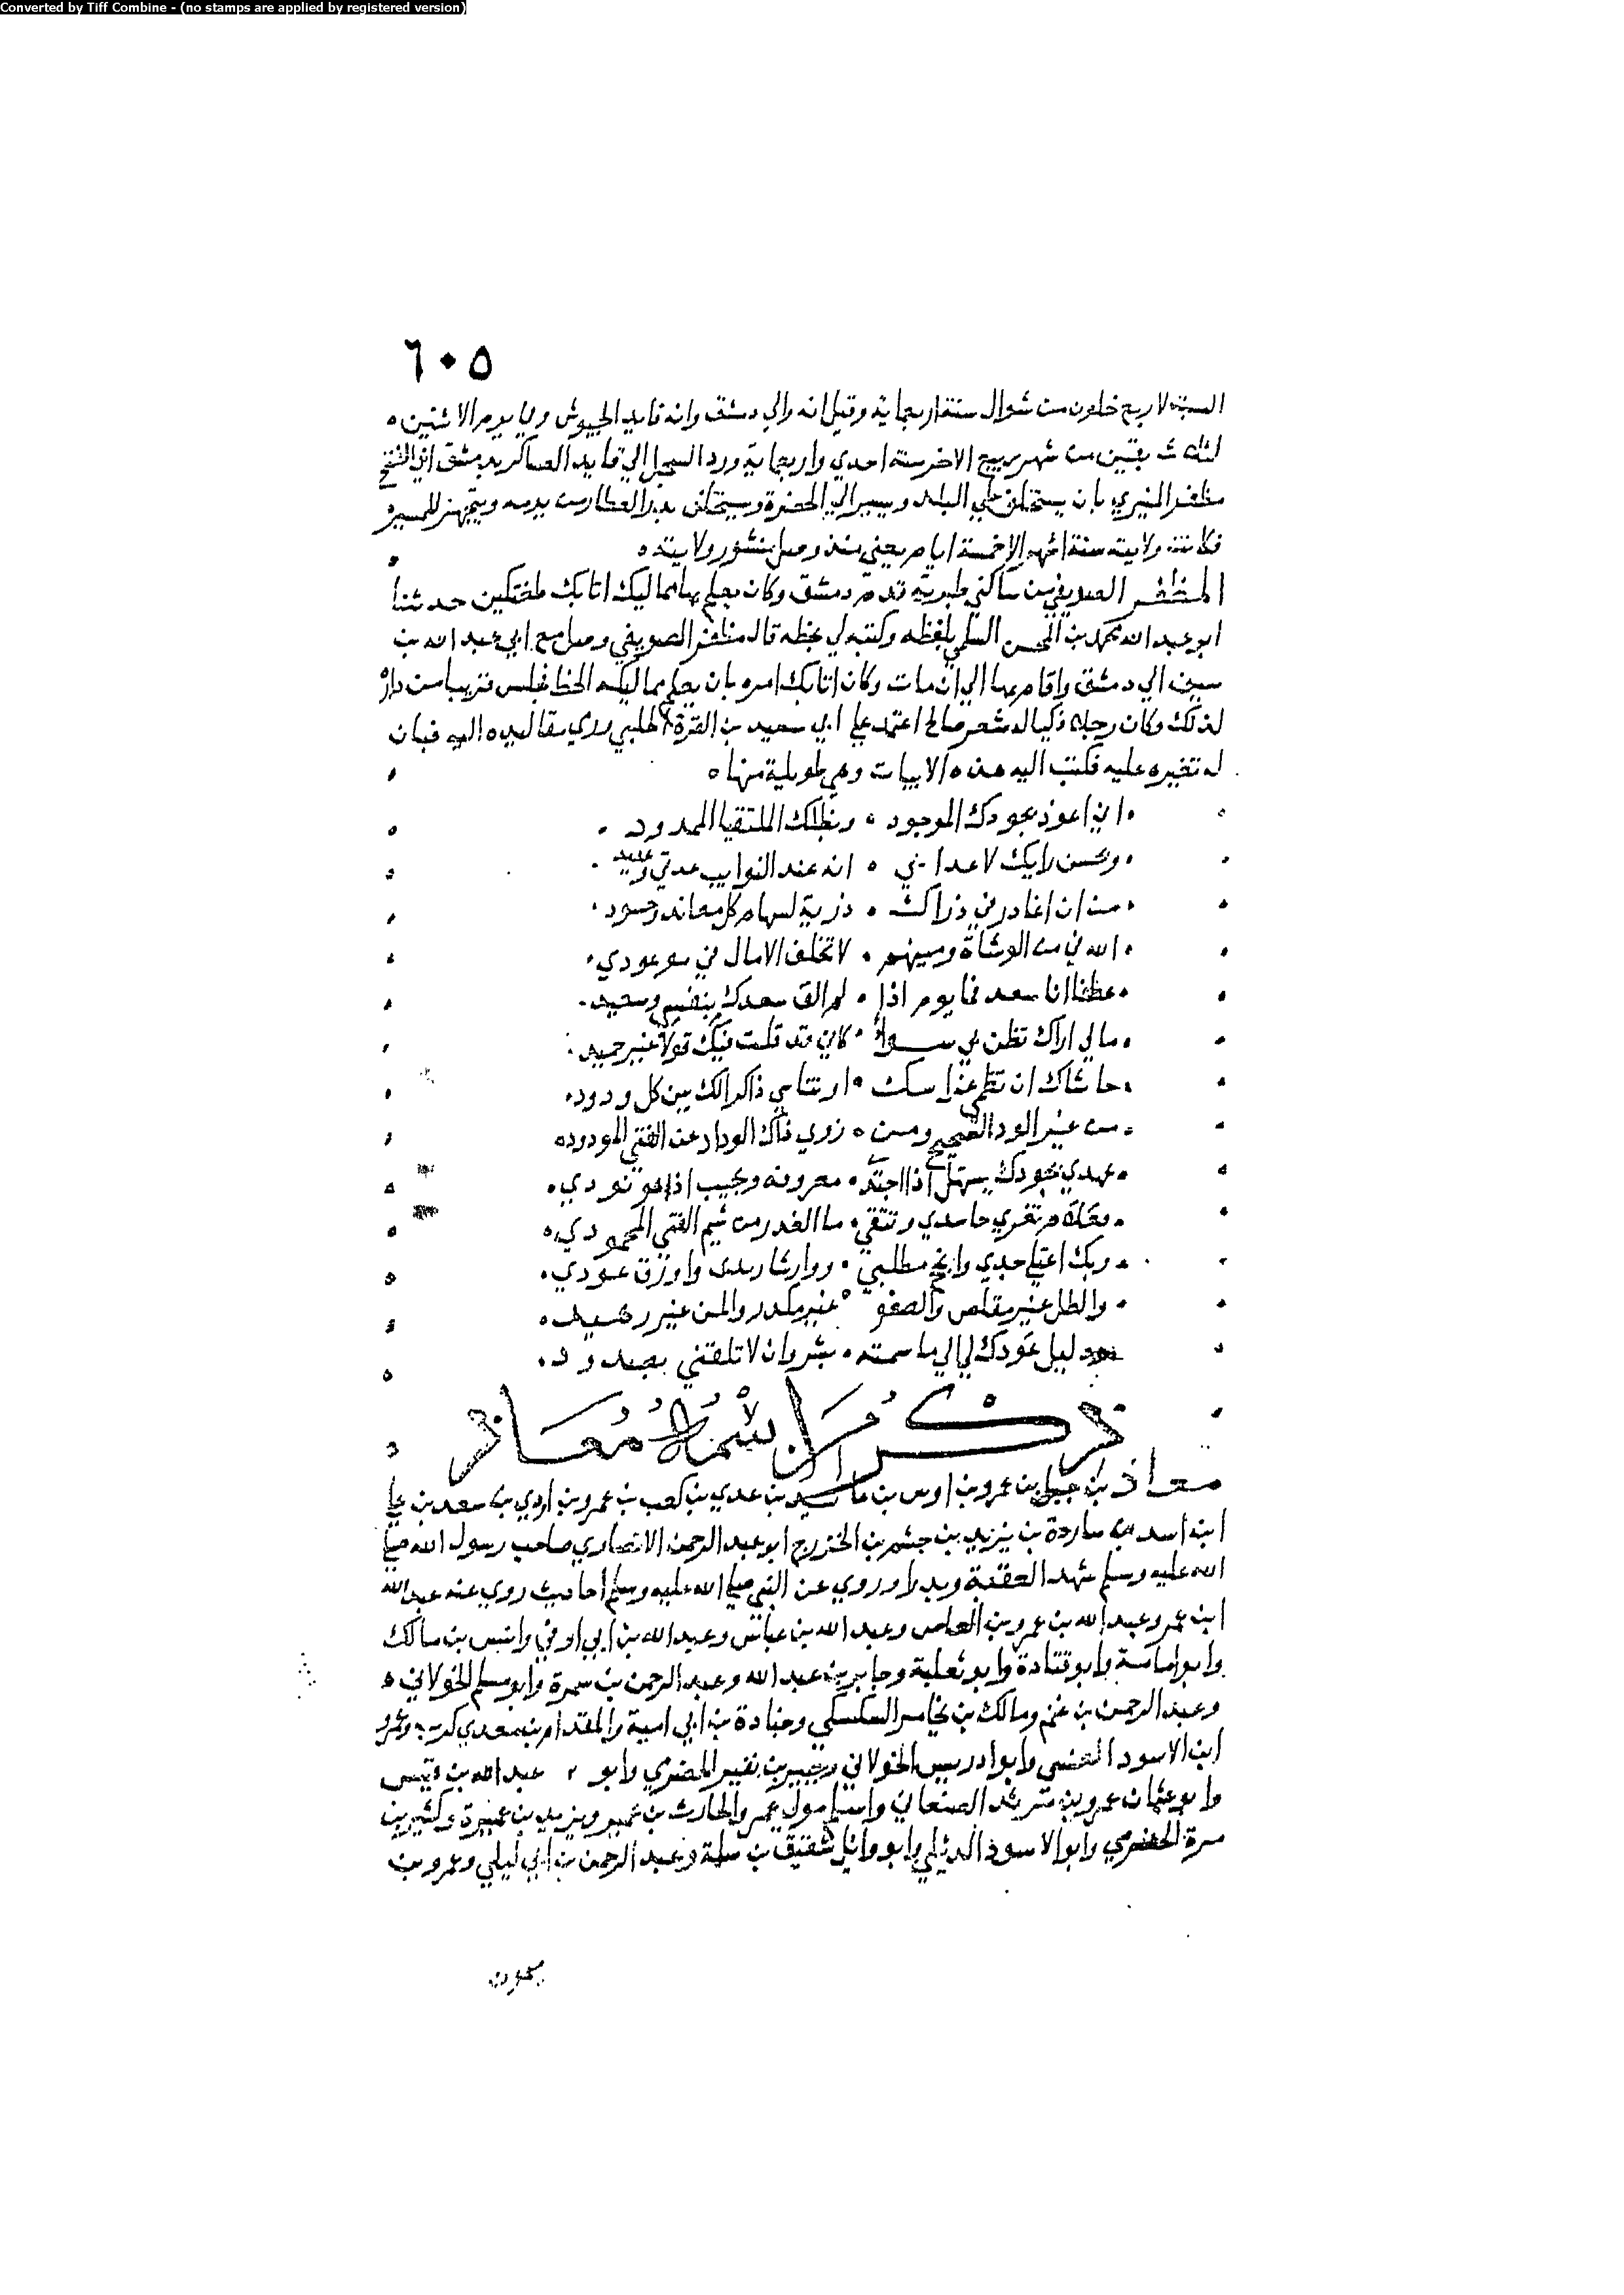 Converted by Tiff Combine - (no stamps are applied by registered version)
٦٠٥
السبت لاربع خلون من شوال سنة اربعماية وقيل انه والي دمشق وانه قايد الجيوش وفي يوم الاثنين
لثلاث بقين من شهر ربيع الاخر سنة احدي واربعماية ورد السجل الي قايد العساكر بدمشق ابي الفتح
مظفر المنيري بان يستخلف علي البلد ويسير الي الحضرة ويستخلف بدر العطار من يومه ويتجهز للمسير
فكانت ولايته ستة اشهر الا خمسة ايام يعني منذ وصل منشور ولايته
المظفر الصويفي من ساكني طبرية قدم دمشق وكان يعلم بها مماليك اتابك طغتكين حدثنا
ابو عبد الله محمد بن المحسن السلمي بلفظه وكتبه لي بخطه قال مظفر الصويفي وصل مع ابي عبد الله بن
الي دمشق واقام بها الي ان مات وكان اتابك امره بان يعلم مماليكه الخط فجلس قريبا من داره
لذلك وكان رجلا ذكيا له شعر صالح اعتمد علي ابي سعيد بن القرة الحلبي مقاليده اليه فبان
له تغيره عليه فكتب اليه هذه الابيات وهي طويلة منها
اني اعوذ بجودك الموجود وبظلك الممدود
وبحسن رايك لا عداني انه عند النوايب عدتي وعديدي
من ان اغادر في ذراك درية لسهام كل معاند وحسود
الله في من الوشاة ومينهم لا تخلف الامال في موعودي
عطفا انا سعد فما يوم اذا لم الق سعدك بنفسي وسعيد
مالي اراك تظن بي سوءا كاني قد قلت فيك قولا غير حميد
حاشاك ان تظن او تنتاسي ذاكرا لك بين كل ودود
من غير الود الصحيح ومن زوي ذاك الوداد عن الفتي المودود
عهدي بجودك يستهل اذا معروفه ويجيب اذا هو نودي
فعلام تغري حاسدي وتتقي ما الغدر من شيم الفتي المحمود
وبك اعتلي جدي وانجح مطلبي واورق عودي
والظل غير مقلص والصفو غير مكدر والمن غير زهيد
دليل عودك لي الي ما سمته بشر وان لا تلقني بصدود
ذكر من اسمه معاذ
معاذ بن جبل بن عمرو بن اوس بن عايذ بن عدي بن كعب بن عمرو بن ادي بن سعد بن علي
ابن اسد بن ساردة بن يزيد بن جشم بن الخزرج ابو عبد الرحمن الانصاري صاحب رسول الله صلي
الله عليه وسلم شهد العقبة وبدرا وروي عن النبي صلي الله عليه وسلم احاديث روي عنه عبد الله
ابن عمر وعبد الله بن عمرو بن العاص وعبد الله بن عباس وعبد الله بن ابي اوفي وانس بن مالك
وابو امامة وابو قتادة وابو ثعلبة وجابر بن عبد الله وعبد الرحمن بن سمرة وابو مسلم الخولاني
وعبد الرحمن بن غنم ومالك بن يخامر السكسكي وجنادة بن ابي امية والمقدام بن معدي كرب وعمرو
ابن الاسود العنسي وابو ادريس الخولاني وجبير بن نفير الحضري وابو عبد الله بن قيس
وابو عثمان عمرو بن مرثد الصنعاني واسلم مولي عمر والحارث بن عمير ويزيد بن عميرة وكثير بن
مرة الحضرمي وابو الاسود الديلي وابو وايل شقيق بن سلمة وعبد الرحمن بن ابي ليلي وعمرو بن
ميمون